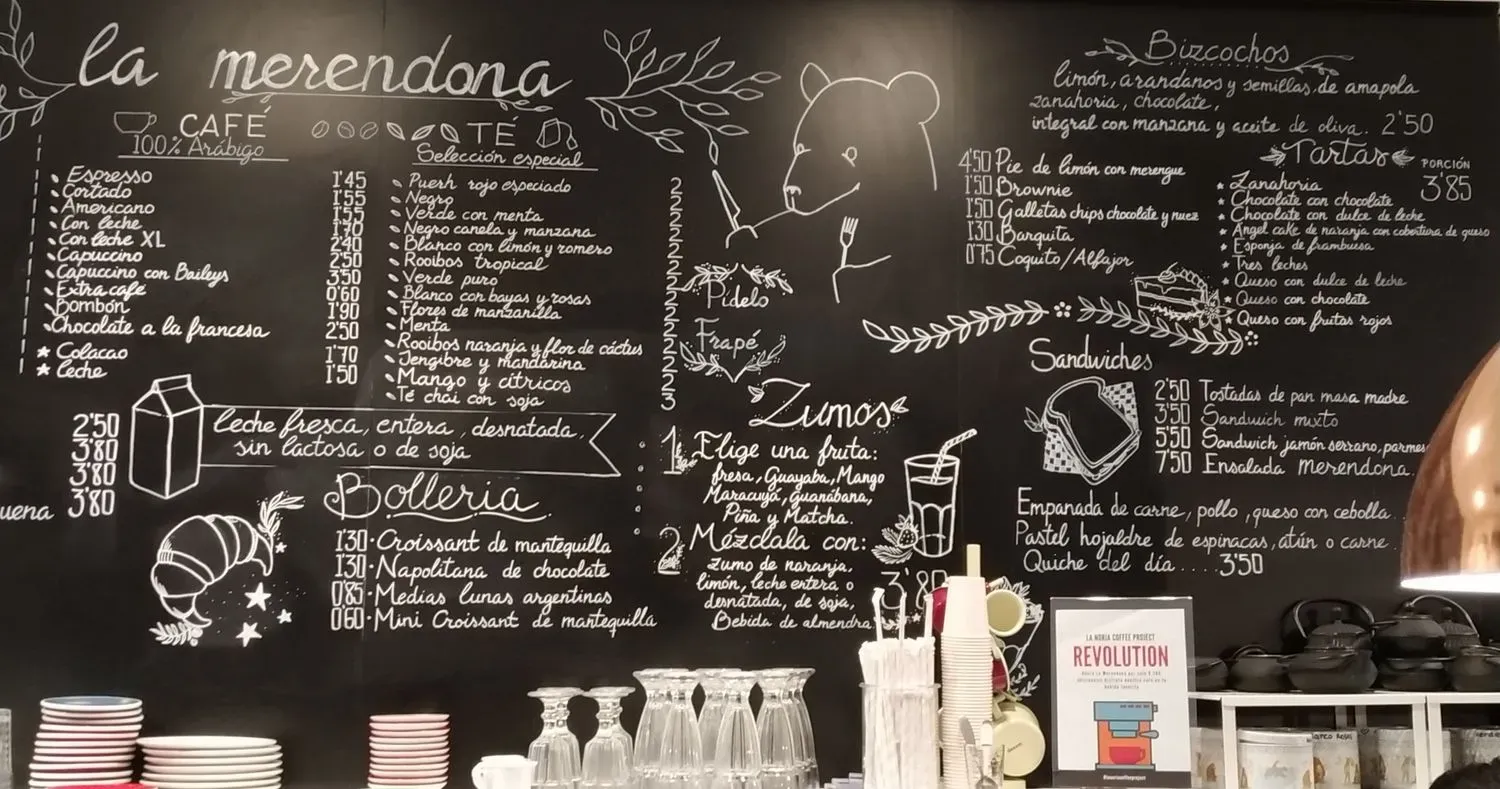 la merendona
CAFÉ
100% Arábigo
Espresso 1'45
Cortado 1'55
Americano 1'55
Con leche 1'70
Con leche XL 2'40
Capuccino 2'50
Capuccino con Baileys 3'50
Extra café 0'60
Bombón 1'90
Chocolate a la francesa 2'50
Colacao 1'70
Leche 1'50
TÉ
Selección especial
Puerh rojo especiado 2
Negro 2
Verde con menta 2
Negro canela y manzana 2
Blanco con limón y romero 2
Rooibos tropical 2
Verde puro 2
Blanco con bayas y rosas 2
Flores de manzanilla 2
Menta 2
Rooibos naranja y flor de cáctus 2
Jengibre y mandarina 2
Mango y cítricos 2
Té chai con soja 3
2'50
3'80
3'80
uena 3'80
leche fresca, entera, desnatada,
sin lactosa o de soja
Bollería
1'30 Croissant de mantequilla
1'30 Napolitana de chocolate
0'85 Medias lunas argentinas
0'60 Mini Croissant de mantequilla
Pídelo
Frapé
Zumos
1 Elige una fruta:
fresa, Guayaba, Mango
Maracuyá, Guanábana,
Piña y Matcha.
2 Mézclala con:
Zumo de naranja,
limón, leche entera o
desnatada, de soja,
Bebida de almendra
3'80
Bizcochos
limón, arandanos y semillas de amapola
zanahoria, chocolate,
integral con manzana y aceite de oliva. 2'50
4'50 Pie de limón con merengue
1'50 Brownie
1'50 Galletas chips chocolate y nuez
1'30 Barquita
0'75 Coquito/Alfajor
Tartas PORCIÓN
3'85
Zanahoria
Chocolate con chocolate
Chocolate con dulce de leche
Angel cake de naranja con cobertura de queso
Esponja de frambuesa
Tres leches
Queso con dulce de leche
Queso con chocolate
Queso con frutas rojos
Sandwiches
2'50 Tostadas de pan masa madre
3'50 Sandwich mixto
5'50 Sandwich jamón serrano, parmes
7'50 Ensalada merendona.
Empanada de carne, pollo, queso con cebolla.
Pastel hojaldre de espinacas, atún o carne.
Quiche del día .... 3'50
LA NORIA COFFEE PROJECT
REVOLUTION